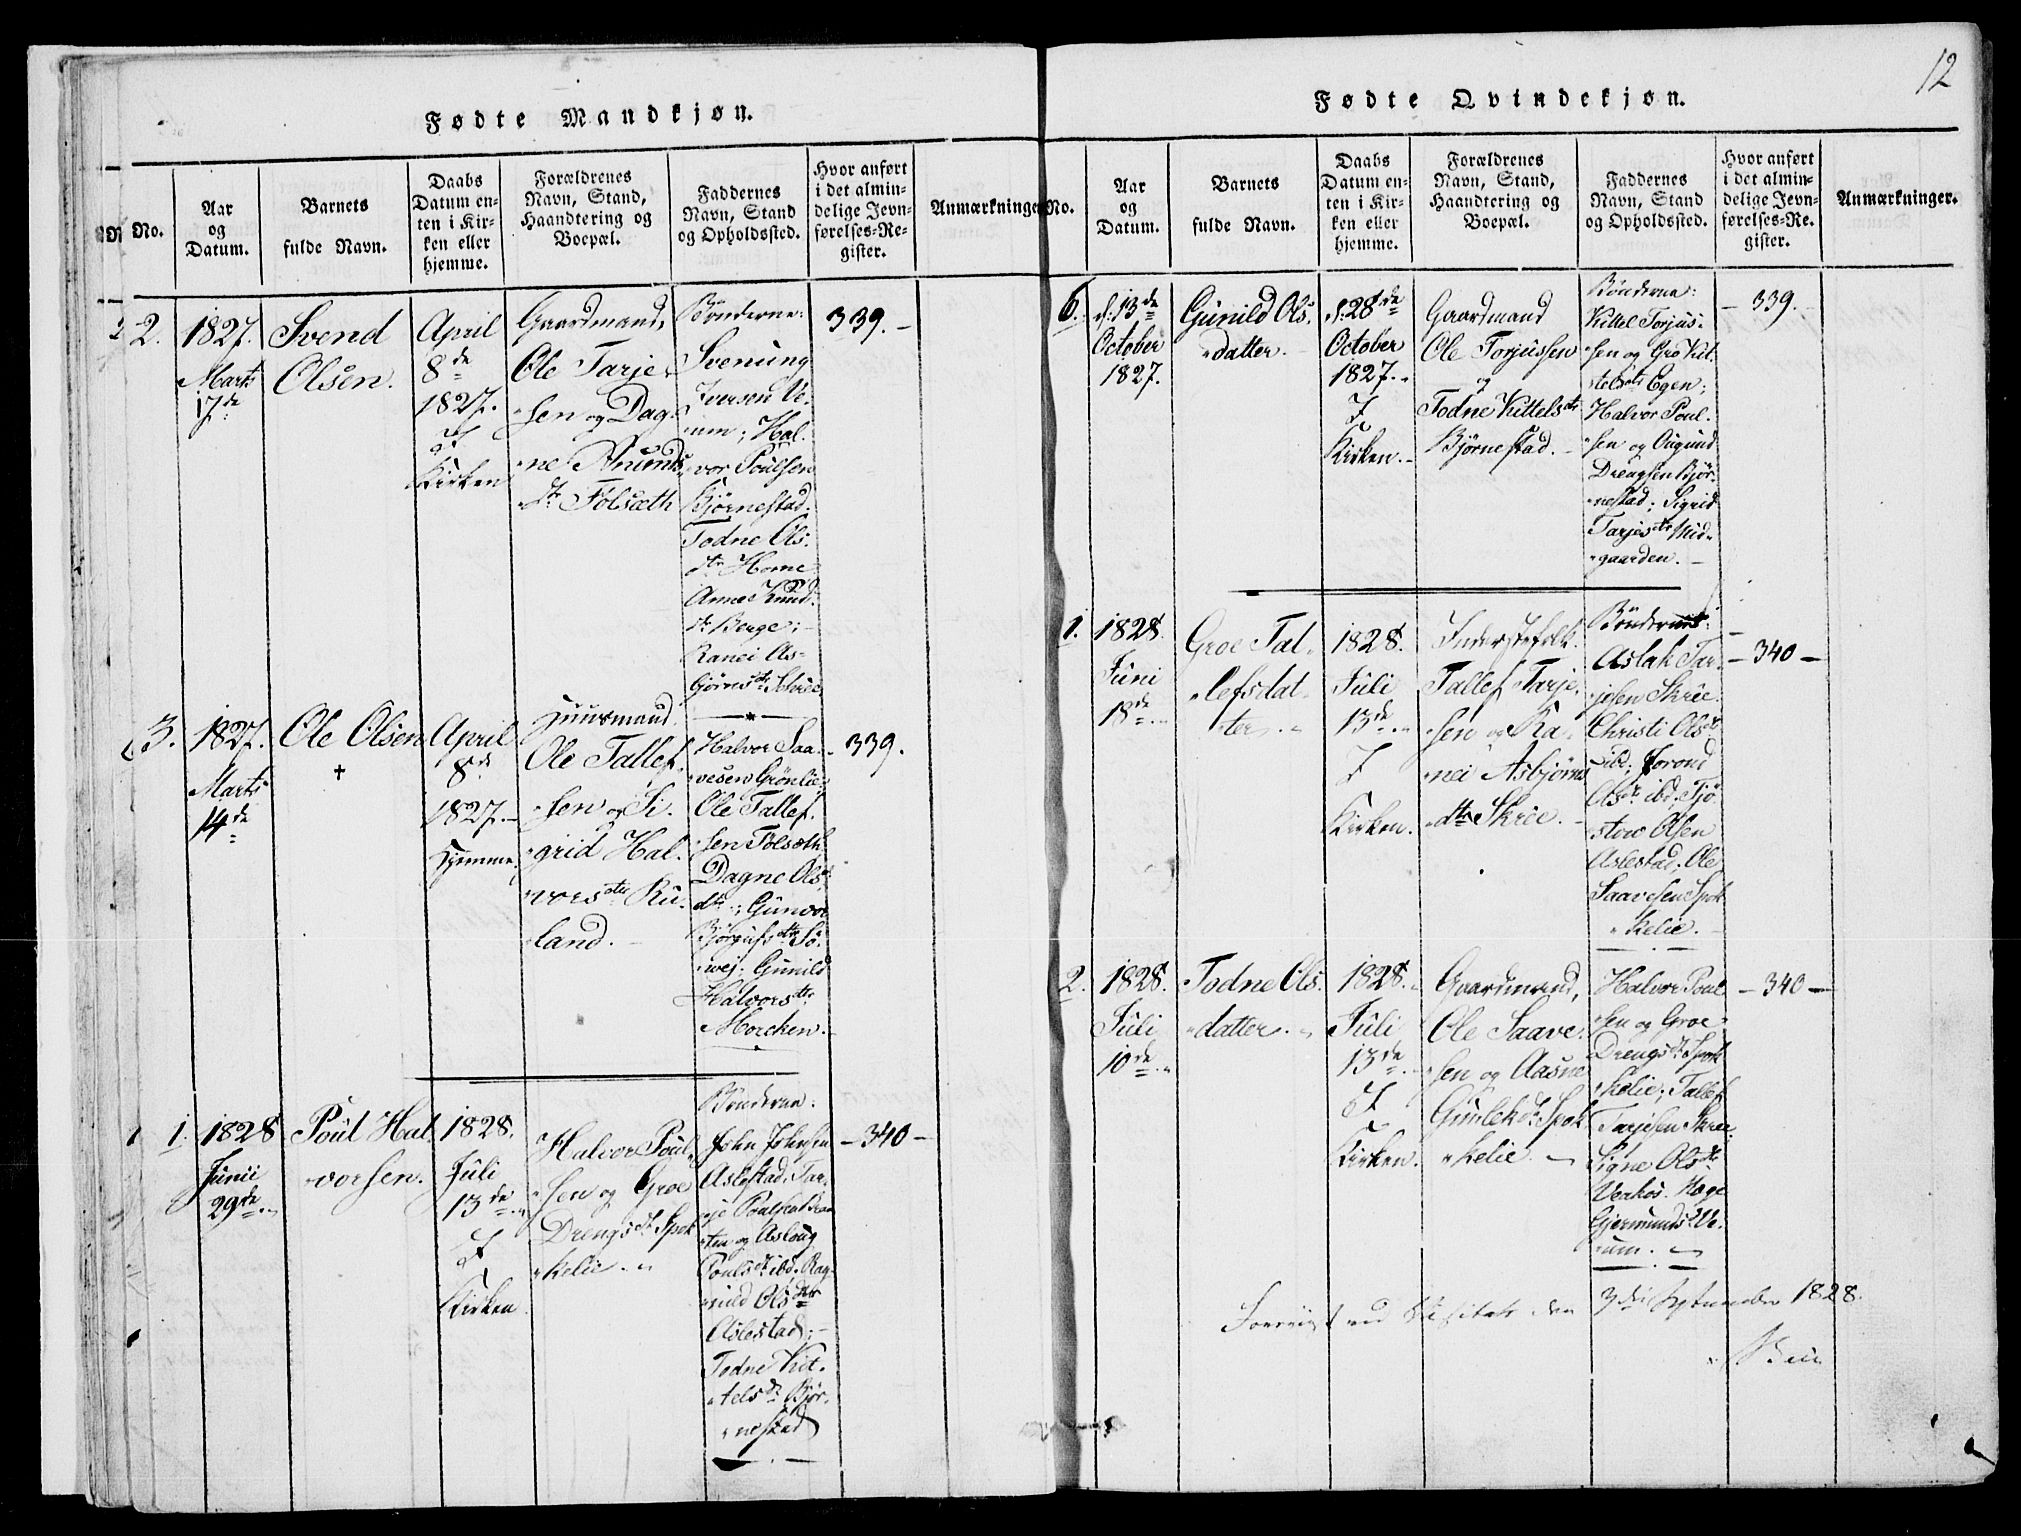 Fødte Mandkjøn.
No.
Aar
og
Datum.
Barnets
fulde Navn.
Daabs
Datum en-
ten i Kir-
ken eller
hjemme.
Forældrenes
Navn, Stand,
Haandtering og
Boepæl.
Faddernes
Navn, Stand
og Opholdssted.
Hvor anført
i det almin-
delige Jevn-
førelses-Re-
gister.
Anmærkninger
2.
1827.
Marts
17de
Svend
Olsen.
April
8de
1827.
I
Kirken
Gaardmand,
Ole Tarje-
sen og Dag-
ne Anunds
dtr Folsæth
Bønderne:
Svenung
Iversen Ve-
um; Hal-
vor Poulsen
Bjørnestad.
Todne Ols-
dtr Homе
Anne Knud
dtr Berge;
Ranei As-
bjørns dtr Skree
339.
3.
1827.
Marts
14de
Ole Olsen
+
April
8de
1827.
Hjemme.
Huusmand
Ole Tallef-
sen og Si-
grid Hal-
vors dtr Ru-
land.
Halvor Saa-
vesen Grönlie
Ole Tallef-
sen Folsæth
Dagne Ols-
dtr; Gunvor
Bjørgufs dtr
Gunild
Halvors dtr
Moreken.
339.
1.
1828
Junii
29de
Poul Hal-
vorsen.
1828.
Juli
13de
I
Kirken
Halvor Poul-
sen og Groe
Drengs dtr Spok-
kelie.
Bønderne:
John Johnsen
Aslestad, Tar-
je Poulsen
og Aslaug
Pouls dtr ibd. Rag-
nild Ols dtr
Aslestad;
Todne Kit-
tels dtr Bjør-
nestad
340
12
Fødte Qvindekjøn.
No.
Aar
og
Datum.
Barnets
fulde Navn.
Daabs
Datum en-
ten i Kir-
ken eller
hjemme.
Forældrenes
Navn, Stand,
Haandtering og
Boepæl.
Faddernes
Navn, Stand
og Opholdssted.
Hvor anført
i det almin-
delige Jevn-
førelses-Re-
gister.
Anmærkninger.
6.
d. 13de
October
1827.
Gunild Ols-
datter.
d. 28de
October
1827.
I
Kirken.
Gaardmand
Ole Torjussen
og
Todne Kittels dtr
Bjørnestad.
Bønderne:
Kittel Torjus-
sen og Gro Kit-
tels dtr Egen;
Halvor Poul-
sen og Ougund
Drengsen Bjør-
nestad; Sigrid
Tarjes dtr Mid-
gaarden.
339.
1.
1828.
Juni
18de
Groe Tal-
lefsdat-
ter.
1828.
Juli
13de
I
Kirken.
Inderstefolk.
Tallef Tarje-
sen og Ra-
nei Asbjørns
dtr Skree.
Bønderne:
Aslak Tar-
jesen Skree.
Christi Ols dtr
ibd; Jorond
Ols dtr ibd. Tjø-
stov Olsen
Aslestad; Ole
Saavesen Spok-
kelie.
340
2.
1828.
Juli
10de
Todne Ols-
datter.
1828.
Juli
13de
I
Kirken.
Gaardmand,
Ole Saave-
sen og Aasne
Gunleks dtr Spok-
kelie.
Halvor Poul-
sen og Groe
Drengs dtr Spok-
kelie; Tallef
Tarjesen Skree;
Signe Ols dtr
Hæge
Gjermunds dtr Ve-
um.
340
ved Visitats den 3die September 1828.